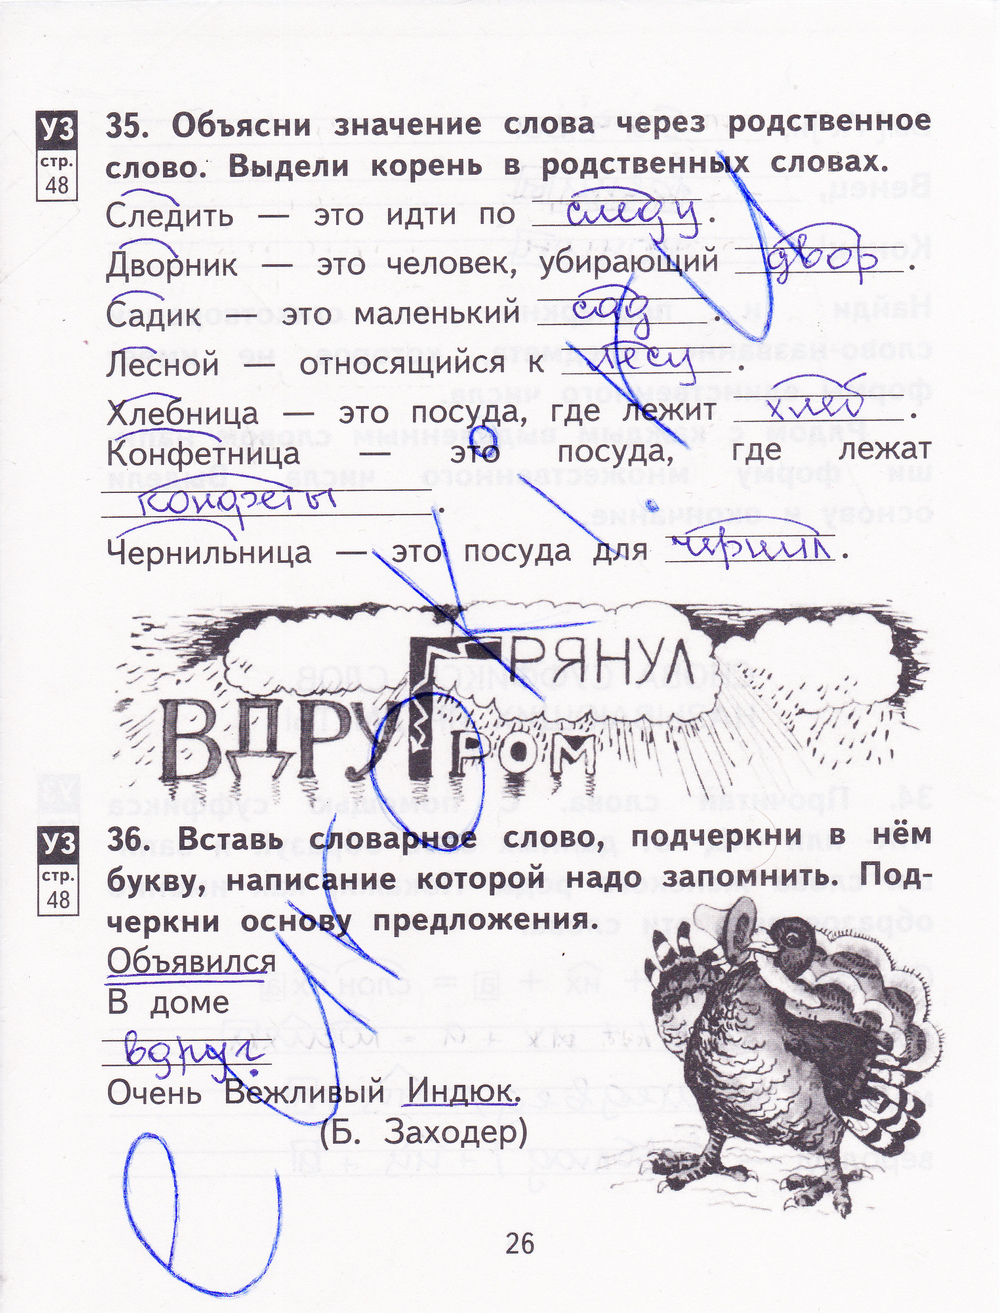 УЗ
стр.
48
35. Объясни значение слова через родственное
слово. Выдели корень в родственных словах.
Следить — это идти по следу.
Дворник — это человек, убирающий двор.
Садик — это маленький сад.
Лесной — относящийся к лесу.
Хлебница — это посуда, где лежит хлеб.
Конфетница — это посуда, где лежат
конфеты.
Чернильница — это посуда для чернил.
ВДРУГ ГРЯНУЛ ГРОМ
УЗ
стр.
48
36. Вставь словарное слово, подчеркни в нём
букву, написание которой надо запомнить. Под-
черкни основу предложения.
Объявился
В доме
вдруг
Очень Вежливый Индюк.
(Б. Заходер)
26